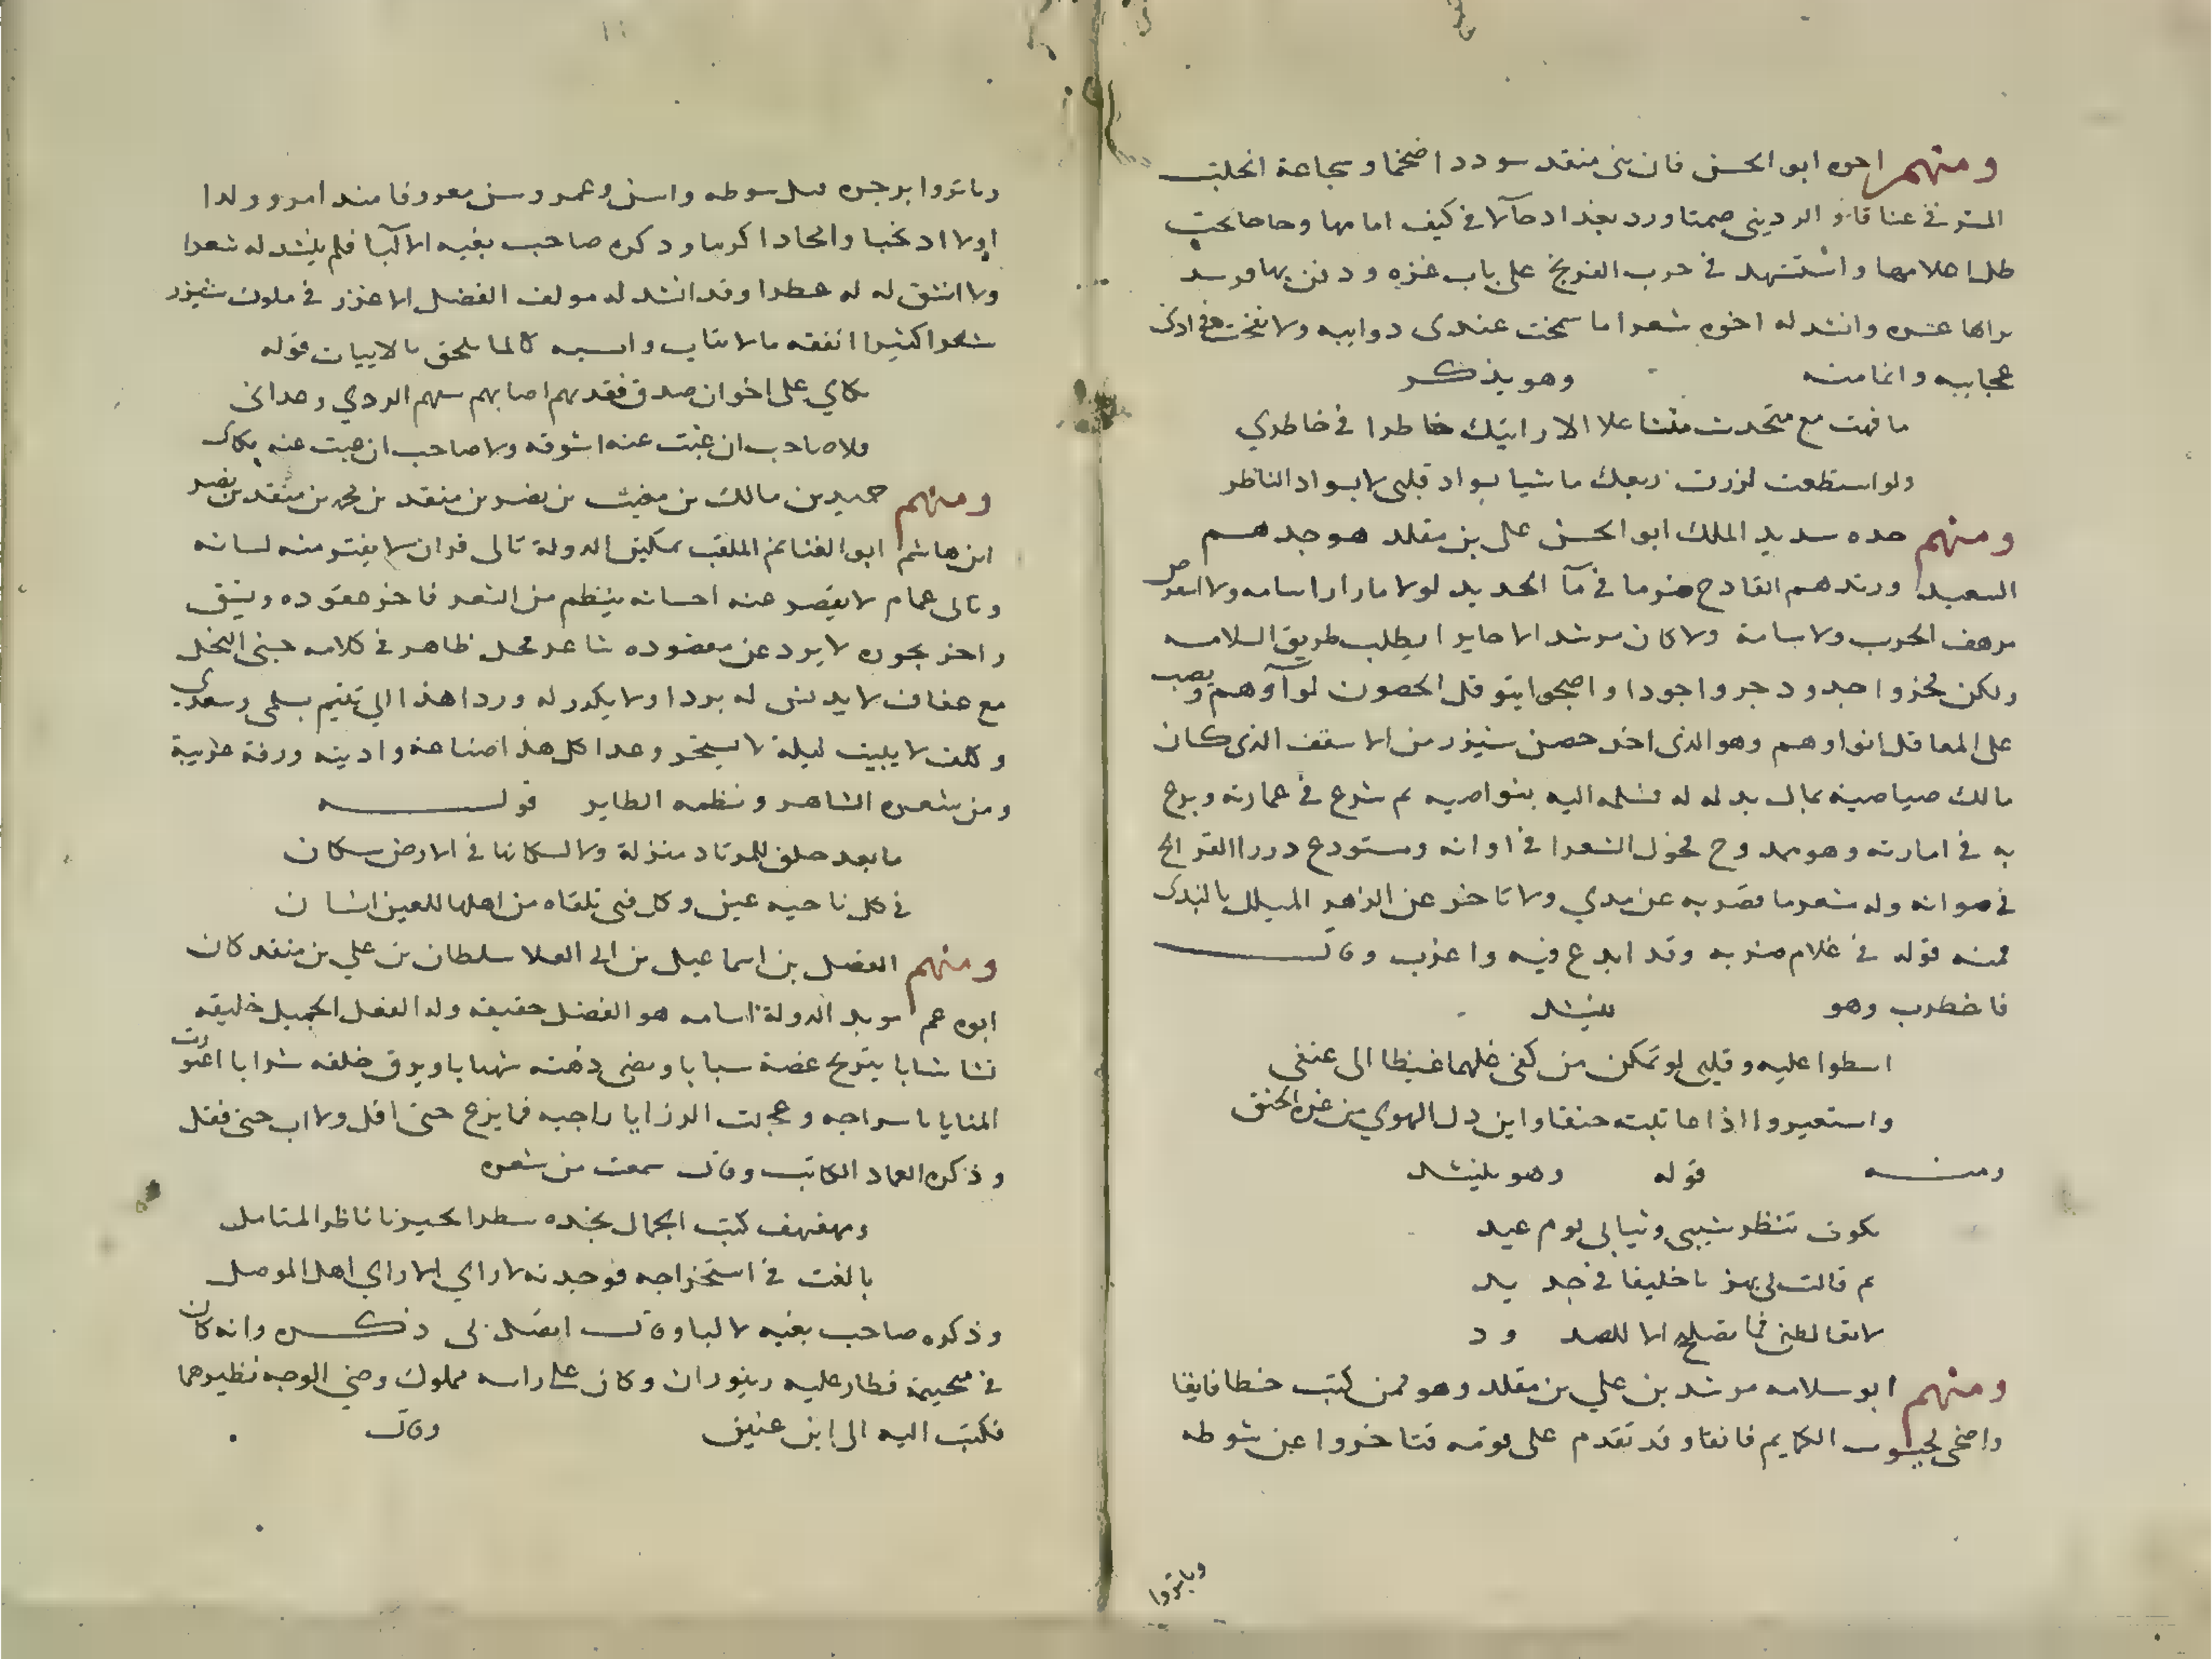 ومنهم اخوه ابو الحسن فان بنى منقد سوددا ضخما وسجاعة انحلبت
فى عناقا الردينى صمتا ورد بغداد حآلا فى كيف امامها وحاحا تحت
ظل اعلامها واستشهد فى حرب الفرنج على باب غزه ودفن بها
وانشد له اخوه شعرا ما سمحت عندى دواييه ولا نفخت فى اذنى
عجاييه وانما منه وهو يذكر
ما فهت مع متحدث متشاغلا الا رايتك خاطرا فى خاطري
ولو استطعت لزرت ربعك ماشيا بسواد قلبى لا بسواد الناظر
ومنهم جده سديد الملك ابو الحسن على بن مقلد هو جدهم
السعيد وزندهم القادح ضرما فى مآ الحديد لولا ما دار اسامه ولا
مرهف الحرب ولا سامة ولا كان مرشد الا حايرا يطلب طريق السلامه
ولكن نجزوا جدودجروا جودا واصبحوا يتوقل الحصون لوآوهم ويصب
على المعاقل انواوهم وهو الذى اخذ حصن شيزر من الاسقف الذى كان
مالك صياصيه بمال بدله له فسلمه اليه بنواصيه ثم شرع فى عمارته وبرع
به فى امارته وهو ممدوح فحول الشعرا فى اوانه ومستودع درر القرايح
فى صوانه وله شعر ما قصر به عن مدي ولا تاخر عن الزهر المبلل بالندى
فمنه قوله فى غلام ضربه وقد ابدع فيه واغرب وقال
فاضطرب وهو ينشد
اسطوا عليه وقلبى لو تمكن من كفى غلهما غيظا الى عنقى
واستعير واذا عاتبته حنقا واين دل الهوي من عزه الحنق
ومنه قوله وهو ينشد
بكرت تنظر شيبى وثيابى يوم عيد
ثم قالت لى بهز يا خليقا فى جديد
لا تغالطنى فما تصلح الا للصدود
ومنهم ابو سلامه مرشد بن علي بن مقلد وهو ممن كتب خطا فايقا
واضحى لجيوب الكمايم فاتقا وقد تقدم على قومه فتاخروا عن شوطه
وباتروا
وباتروا برجوه قبل سوطه واسن وعمر وسن معروفا منذ امر وولدا
اولادا نجبا وامحادا كرما وذكره صاحب بغيه الالبا فلم ينشد له شعرا
ولا انشق له عطرا وقد انشد له مولف الفضل الاعزز فى ملوك شيزر
شعرا كثيرا انفقه ما لا يناسب واسبه كالما يلحق بالابيات قوله
بكاي على اخوان صدق فقدتهم اصابهم سهم الردي وعدانى
فلا صاحب ان غبت عنه اشوقه ولا صاحب ان غبت عنه بكانى
ومنهم حميد بن مالك بن مغيث بن نصر بن منقد بن محمد بن منقد بن نصر
ابن هاشم ابو الغنايم الملقب بمكين الدولة تالى قران لا يفتر منه لسانه
وتالى عمام لا يقصر عنه احسانه ينظم من الشعر فاخر عقوده وينفق
زاخر بجوره لا يرد عن مقصوده شاعر محل ظاهر فى كلامه جنى النحل
مع عفاف لا يدنس له بردا ولا يكدر له وردا هذا الى تتيم بسلمى وسعدى
وكلف لا يبيت ليلة لا يسحر وعدا كل هذا صناعة وادبيه ورقة عربية
ومن شعره الشاهر ونظمه الطاير قوله
ما بعد جلق للمرتاد منزلة ولا لسكانها فى الارض سكان
فى كل ناحيه عين وكل فتى تلقاه من اهلها للعين انسان
ومنهم الفضل بن اسماعيل بن ابى العلا سلطان بن علي بن منقد كان
ابوه عم مويد الدولة اسامه هو الفضل حقيقه وله الفعل الجميل خليقه
نشا شابا يترنح غصنه سبابا ويضى ذهنه شهابا ويرق خلقه شرابا اغتورت
المنايا باسراجه وعجلت الرزايا راجيه فما بزع حتى افل ولا اب حتى قفل
وذكره العماد الكاتب وقال سمعت من شعره
ومهفهف كتب الجمال بخده سطرا يحير ناظر المتامل
بالغت فى استخراجه فوجدته لا راي الا راي اهل الموصل
وذكره صاحب بغيه الالبا وقال اتصل بى ذكره وانه كان
فى خيمة فطار عليه زنبوران وكان على راسه مملوك وضى الوجه نظيرهما
فكتب اليه الى ابن عنين وقال